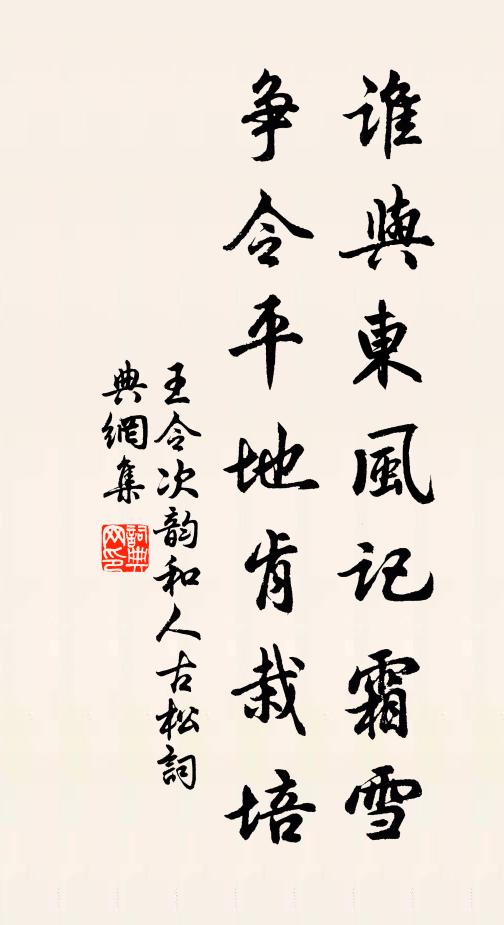 誰與東風記霜雪
爭令平地肯栽培
王令次韵和人古松詞
典網集
詞典网印